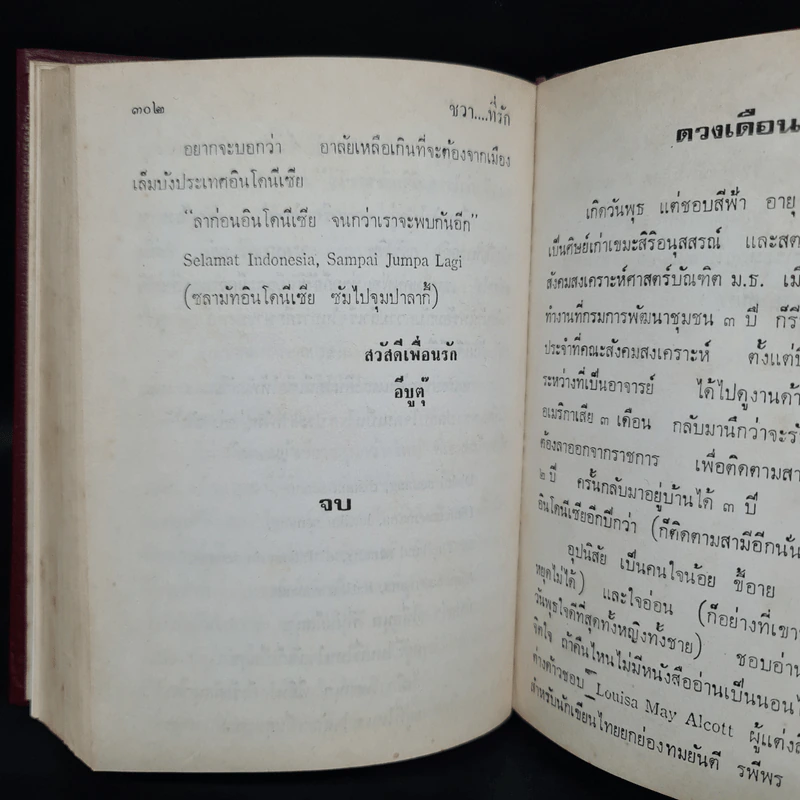 ๓๐๒
ชวา....ที่รัก
อยากจะบอกว่า อาลัยเหลือเกินที่จะต้องจากเมือง
เล็มบังประเทศอินโดนีเซีย
“ลาก่อนอินโดนีเซีย จนกว่าเราจะพบกันอีก”
Selamat Indonesia, Sampai Jumpa Lagi
(ซลามัทอินโดนีเซีย ซัมไปจุมปาลากี้)
สวัสดีเพื่อนรัก
อีบูตุ๊
จบ
ดวงเดือน
เกิดวันพุธ แต่ชอบสีฟ้า อายุ
เป็นศิษย์เก่าเขมะสิริอนุสสรณ์ และสต
สังคมสงเคราะห์ศาสตร์บัณฑิต ม.ธ. เมื
ทำงานที่กรมการพัฒนาชุมชน ๓ ปี ก็รี
ประจำที่คณะสังคมสงเคราะห์ ตั้งแต่ปี
ระหว่างที่เป็นอาจารย์ ได้ไปดูงานด้า
อเมริกาเสีย ๓ เดือน กลับมานึกว่าจะรั
ต้องลาออกจากราชการ เพื่อติดตามสา
๒ ปี ครั้นกลับมาอยู่บ้านได้ ๓ ปี
อินโดนีเซียอีกปีกว่า (ก็ติดตามสามีอีกนั่น
อุปนิสัย เป็นคนใจน้อย ขี้อาย
หยุดไม่ได้) และใจอ่อน (ก็อย่างที่เขาว
วันพุธใจดีที่สุดทั้งหญิงทั้งชาย) ชอบอ่าน
จิตใจ ถ้าคืนไหนไม่มีหนังสืออ่านเป็นนอนไ
ต่างด้าวชอบ Louisa May Alcott ผู้แต่งสี
สำหรับนักเขียนไทยยกย่องทมยันตี รพีพร